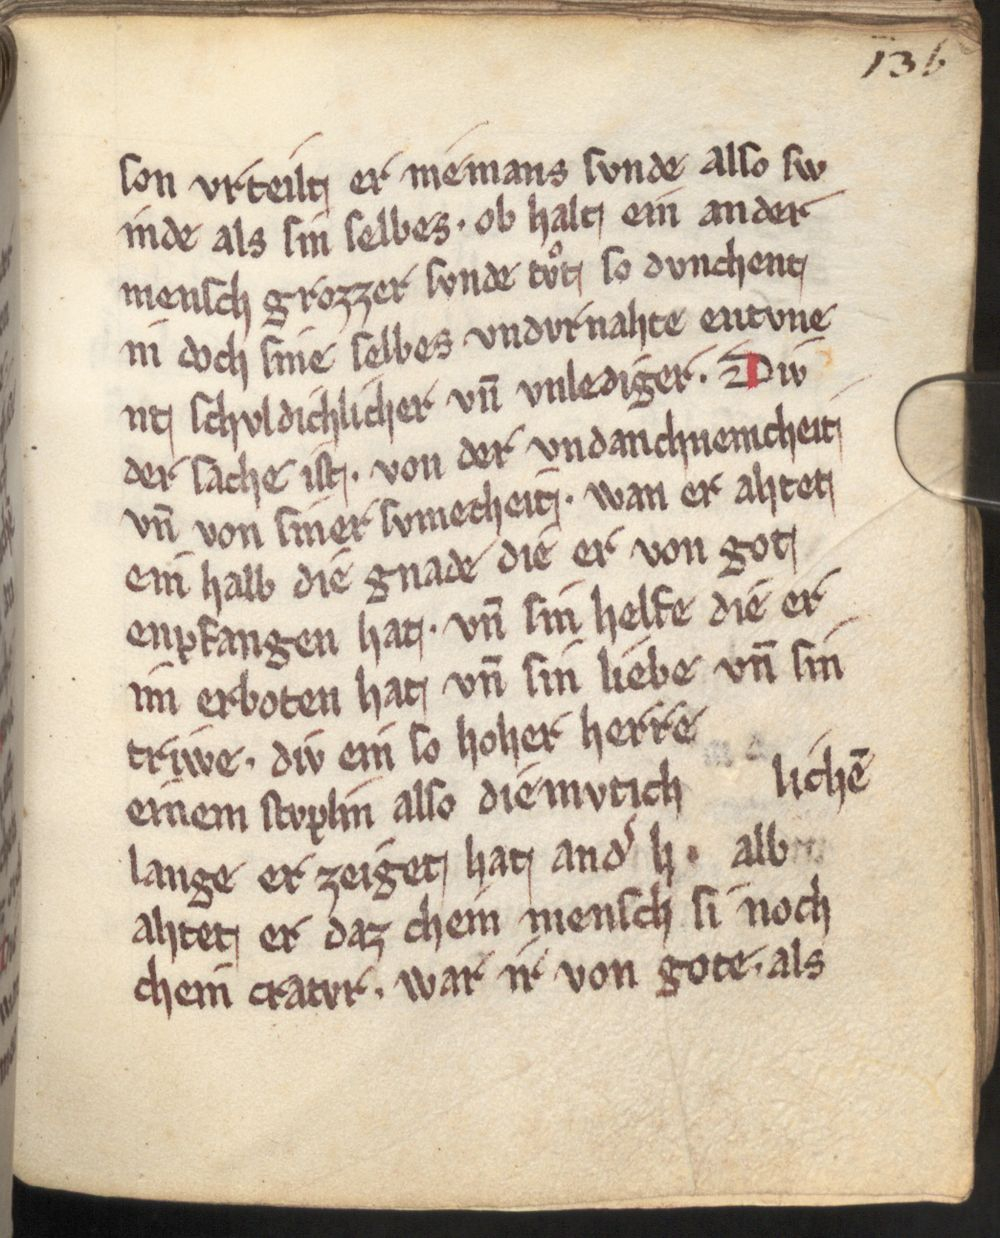 136
son vrteilt er niemans svnde also sw
inde als sin selbes · ob halt ein ander
mensch grozzer svnde tvͦt so dvnchent
in doch sine selbes vndvrnahte entvne
nt schvldichlicher vn̄ vnlediger · Div
der sache ist · von der vndanchnemcheit
vn̄ von siner svmecheit · wan er ahtet
ein halb die gnade die er von got
enpfangen hat · vn̄ sin helfe die er
im erboten hat vn̄ sin liebe vn̄ sin
triwe · div ein so hoher herre
einem stvplin also diemvtich lichē
lange er zeiget hat and᾽ h · alb
ahtet er daz chein mensch si noch
chein cratvr · war ir von gote · als